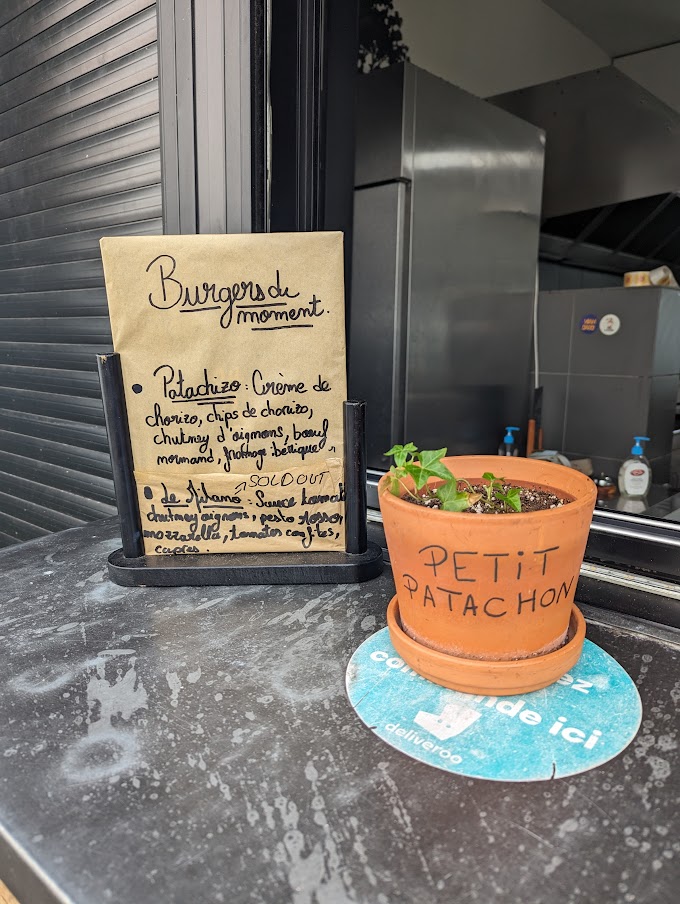 Burgers du
moment.
• Patachizo : Crème de
chorizo, chips de chorizo,
chutney d'oignons, bœuf
normand, fromage bettique
SOLD OUT
• Le Milano : Sauce tomate
chutney oignons, pesto rosso,
mozzarella, tomates confites,
capres.
PETIT
PATACHON
ez
ici
deliveroo